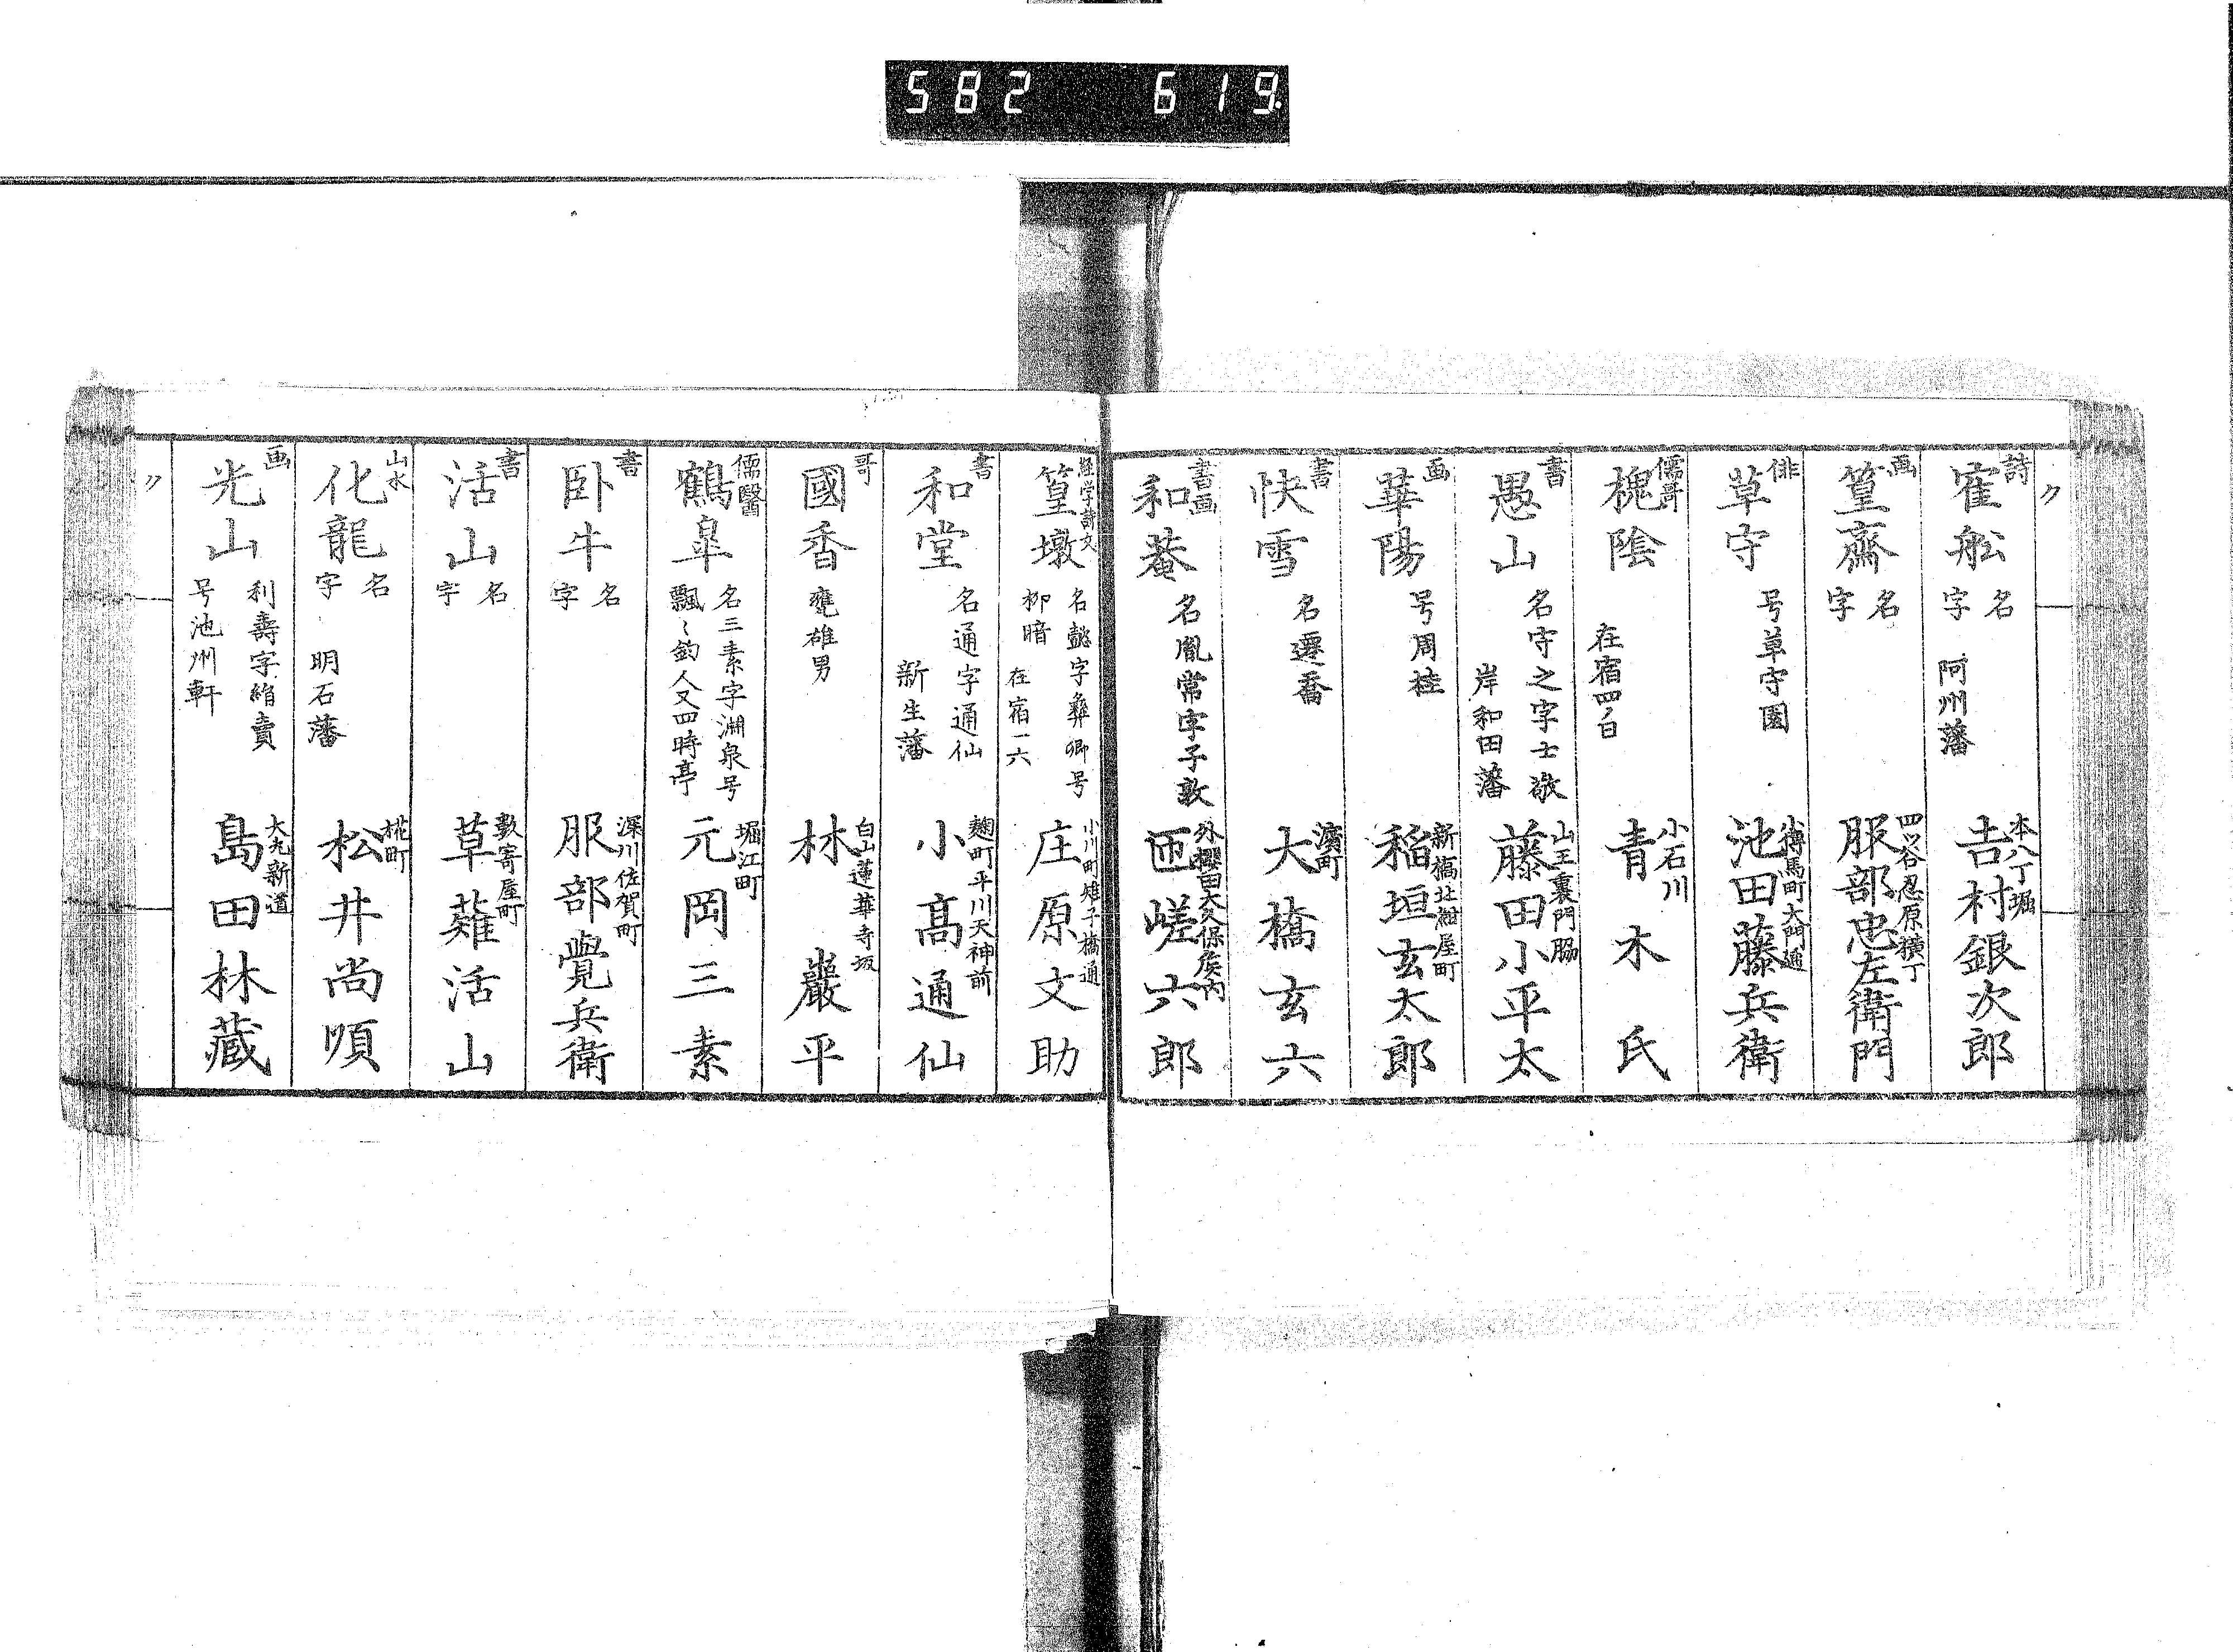 582 619.
〃
詩
寉舩
名
字
阿州藩
本八丁堀
吉村銀次郎
画
篁齋
名
字
四ツ谷忍原横丁
服部忠左衛門
俳
草守
号草守園
小傳馬町大門通
池田藤兵衛
儒哥
槐陰
在宿四ノ日
小石川
青木氏
書
愚山
名守之字士敬
岸和田藩
山王裏門脇
藤田小平太
画
華陽
号周桂
新橋北紺屋町
稲垣玄太郎
書
快雪
名遷喬
濱町
大橋玄六
書画
和菴
名胤常字子敦
外櫻田大久保矦内
匝嵯六郎
経学詩文
篁墩
名懿字彜卿号
柳暗
在宿一六
小川町雉子橋通
庄原文助
書
和堂
名通字通仙
新生藩
麹町平川天神前
小高通仙
哥
國香
甕雄男
白山蓮華寺坂
林巖平
儒醫
鶴皐
名三素字淵泉号
飄〻釣人又四時亭
堀江町
元岡三素
書
卧牛
名
字
深川佐賀町
服部覺兵衛
書
活山
名
字
數寄屋町
草薙活山
山水
化龍
名
字
明石藩
糀町
松井尚順
画
光山
利壽字
号池州軒
大丸新道
島田林藏
〃